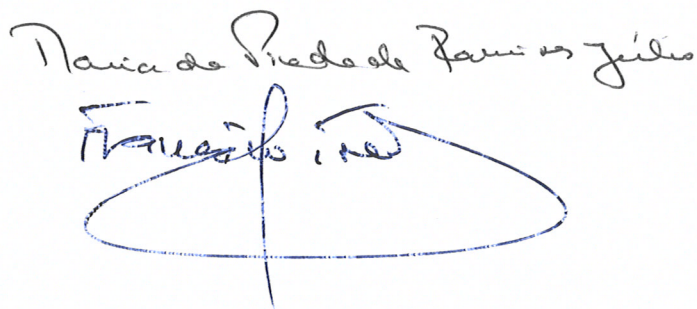 Maria da Piedade Ramires Júlio
Francisco